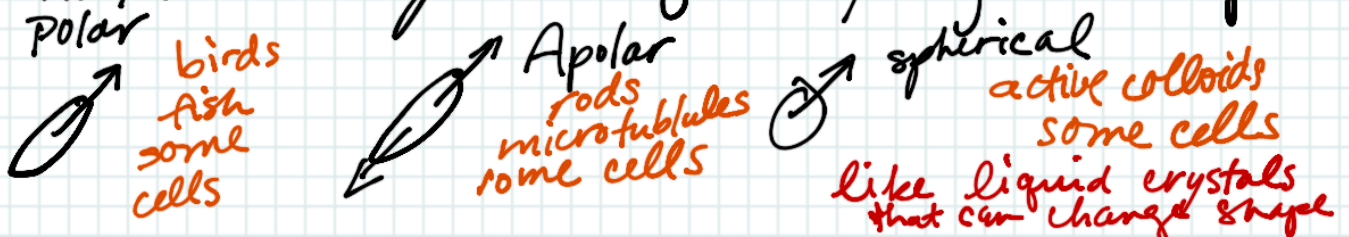 Polar
birds
fish
some
cells
Apolar
rods
microtublules
some cells
spherical
active colloids
some cells
like liquid crystals
that can change shape